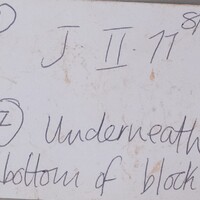 J II.11
Underneath
bottom of block